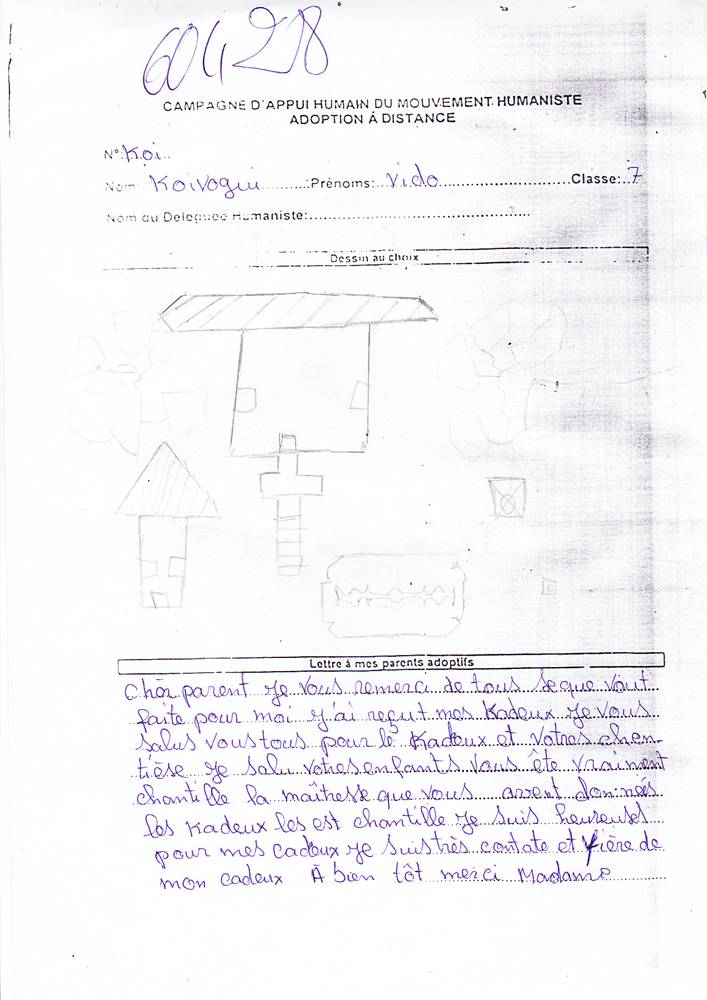 60428
CAMPAGNE D'APPUI HUMAIN DU MOUVEMENT HUMANISTE
ADOPTION À DISTANCE
N°: Koi
Nom: Koivogui Prénoms: Vido Classe: 7
Nom du Deleguée Humaniste:
Dessin au choix
Lettre à mes parents adoptifs
Chör parent je vous remerci de tous seque vout
faite pour moi j'ai reçut mes Kadeux je vous
salus vous tous pour le Kadeux et votres chen-
tièse je salu votres enfants vous ête vraiment
chantille la maîtresse que vous avent donnés
les Kadeux les est chantille je suis heureuses
pour mes cadeux je suis très contate et fière de
mon cadeux À bien tôt merci Madame